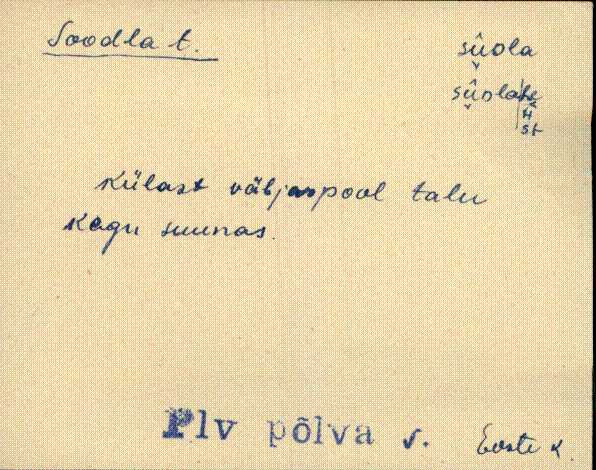 Soodla t.
sûola
sûolahe
n
st
Külast väljaspool talu
kagu suunas.
Plv põlva v.
Eoste k.